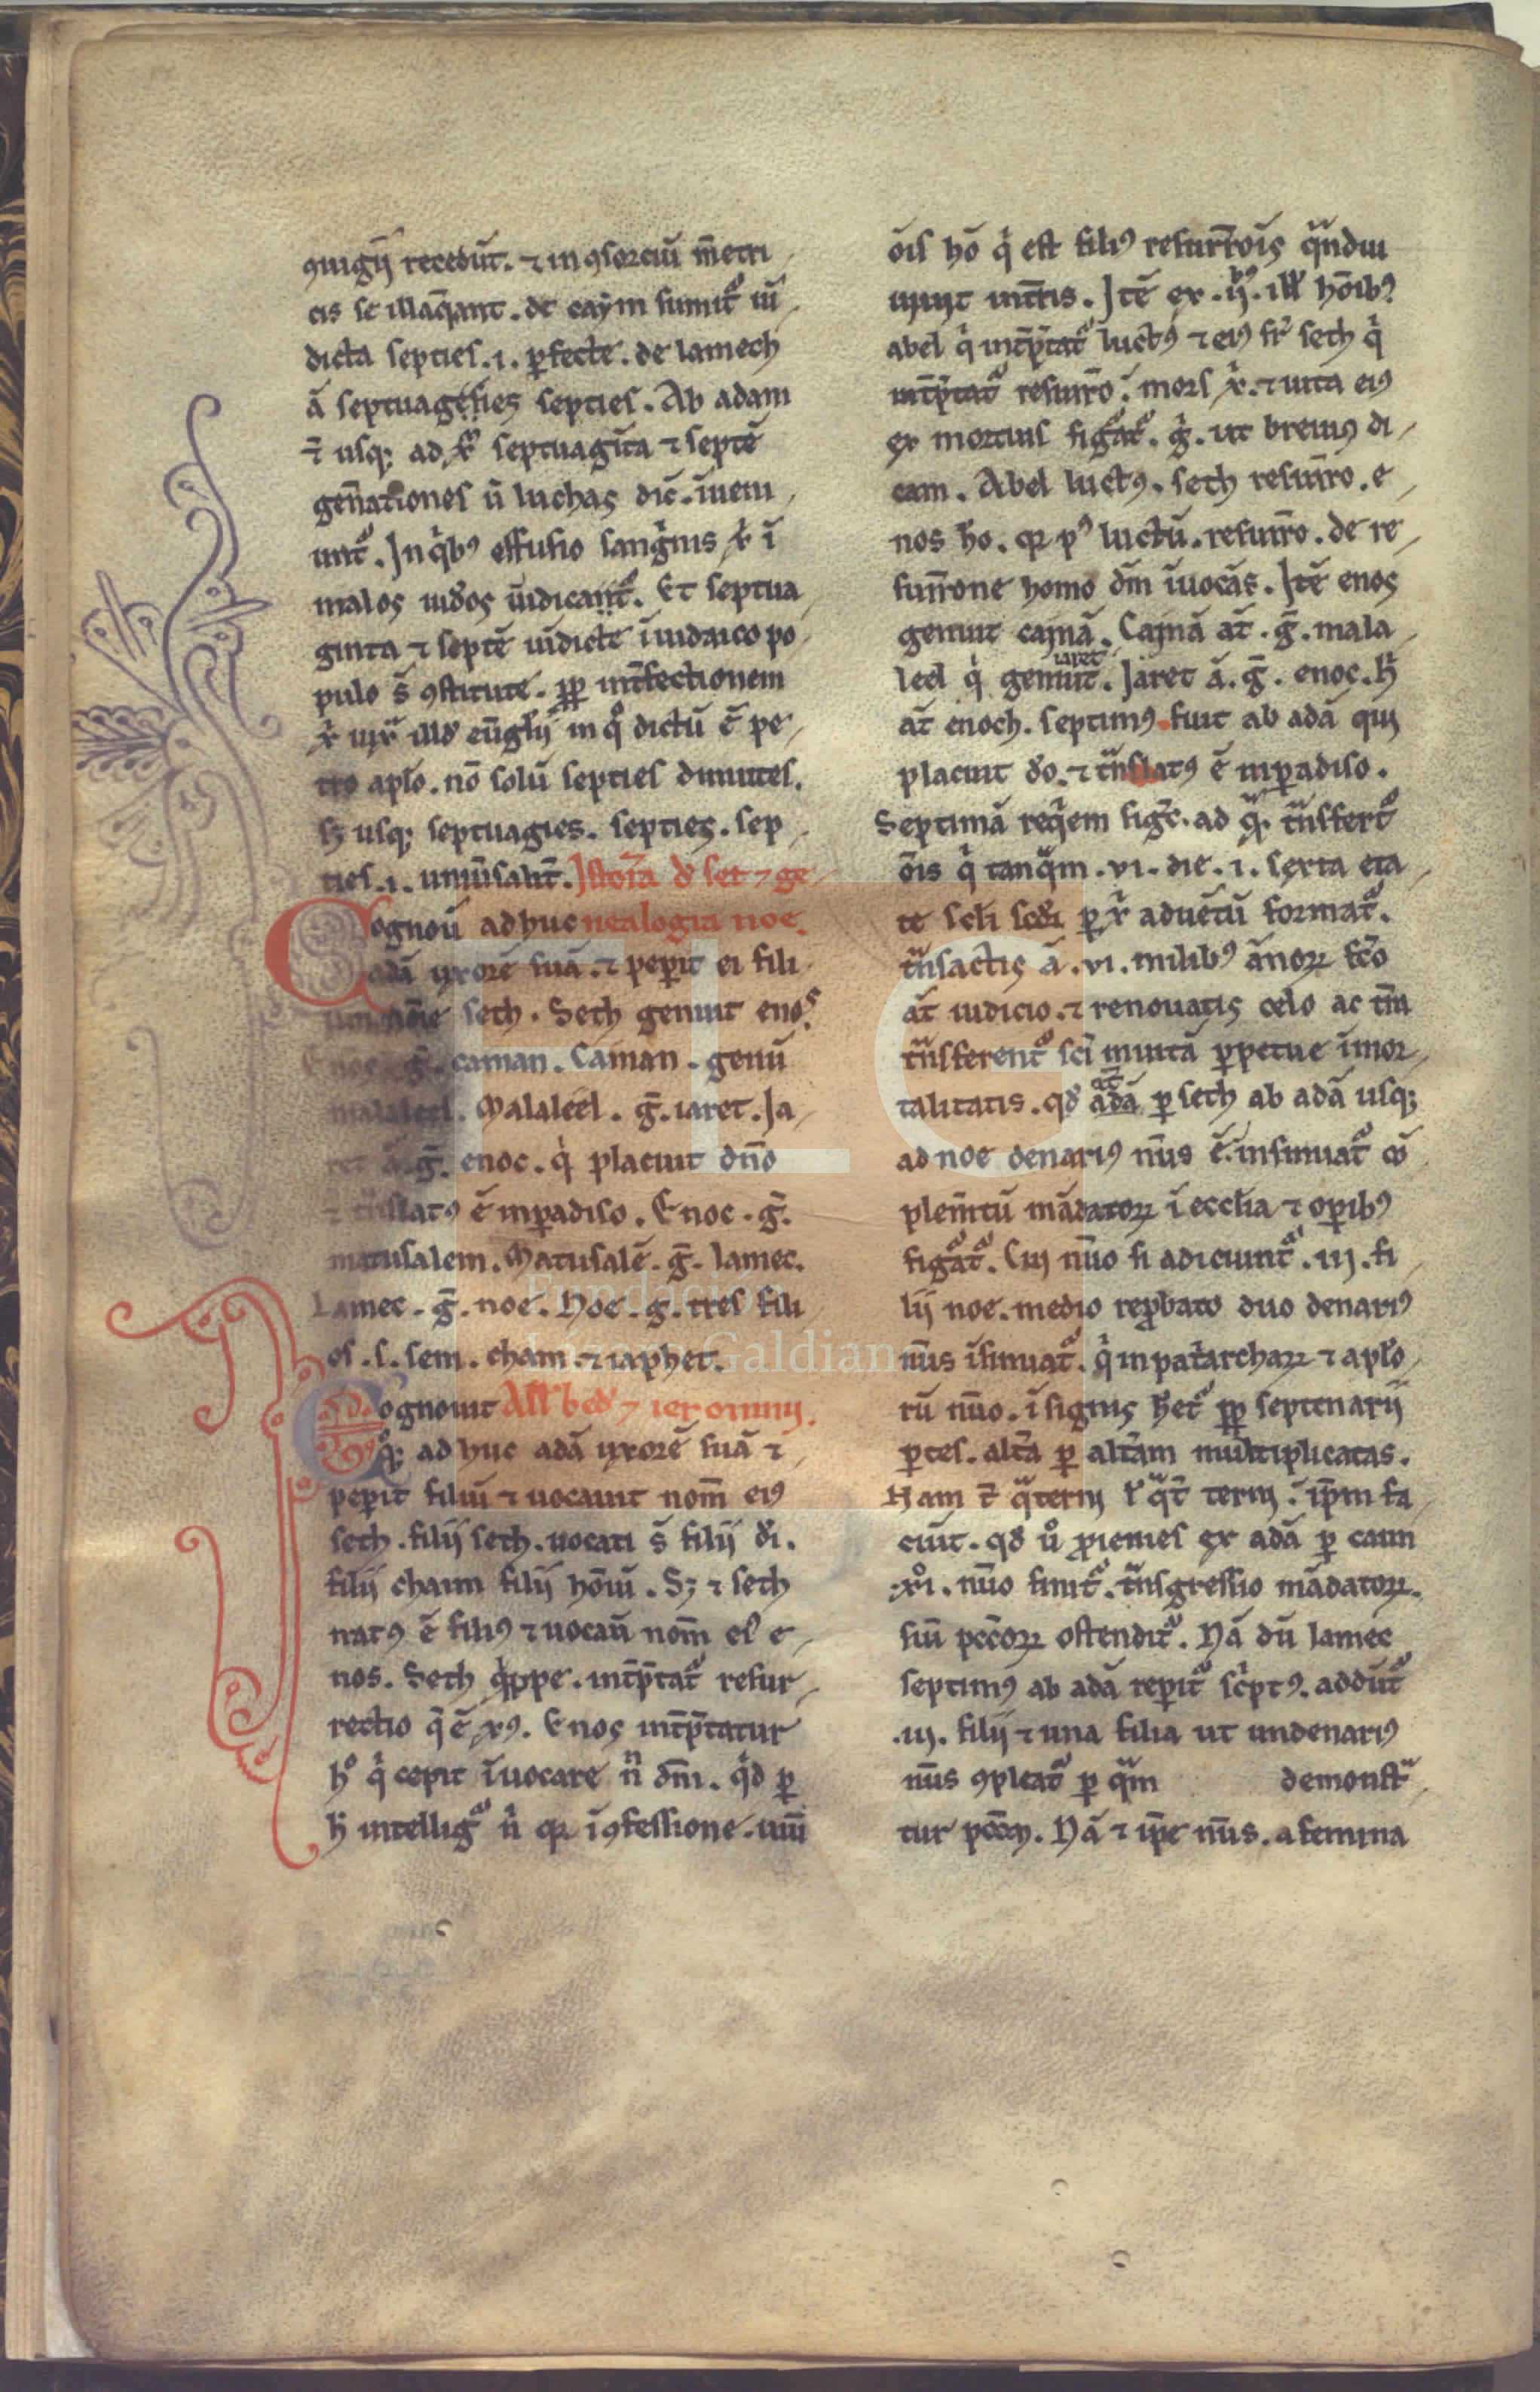 ꝯiugij recedūt. ⁊ in ꝯsorciū m̄etri
cis se illaq̄ant. de caym sumitᷣ uī
dicta septies .i. ꝑfecte. de lamech
ā septuagesies septies. Ab adam
.n̄ usq; ad xp̄m septuagīta ⁊ septē
gen̄ationes ū luchas dic̄. īueni
untᷣ. In q̇bꝰ effusio sang̍nis xp̍i ī
malos iud̓os uīdicantᷣ. Et septua
ginta ⁊ septē uīdicte ī iudaico po
pulo s̄ ꝯstitute. ꝓp̄ int̄fectionem
illud eūg̍lij in q° dictū ē pe
tro aplo. nō solū septies dimittes.
sꝫ usq; septuagies. septies. sep
ties .i. uniūsalit̄. Istor̄ia d̓ set ⁊ ge
Cognoū ad huc nealogia noe.
adā uxorē suā. ⁊ peꝑit ei fili
um nōie seth. Seth genuit enos.
Enoc. ḡ. cainan. Cainan. genū
malaleel. Malaleel. ḡ. iaret. Ia
ret ā. ḡ. enoc. q̇ placuit dn̄o
⁊ tͣnslatꝰ ē inꝑadiso. Enoc. ḡ.
matusalem. Matusalē. ḡ. lamec.
Lamec. ḡ. noe. Noe. g. tres fili
os .s. sem. cham. ⁊ iaphet.
Cognouit All̓ bed̓ ⁊ ieronimi.
q°; ad huc adā uxorē suā ⁊
peꝑit filiū ⁊ uocauit nom̄ eiꝰ
seth. filij seth. uocati s̄ filij d̓i.
filij chaim filij hōiū. Sꝫ ⁊ seth
natꝰ ē filiꝰ ⁊ uocaū nom̄ eiꝰ e
nos. Seth q̇ppe. int̄p̄tatᷣ resur
rectio q̄ ē xp̄s. Enos int̄p̄tatur
h° q̇ cepit īuocare n̄ dm̄. q̍d ꝑ
h̄ intelligᷣ n̄ qꝛ ī ꝯfessione. uiuī
ōis hō q̇ est filiꝰ resurr̄ois qͣndiu
uiuit int̄ris. Itē ex .ij. ill̓ hōibꝰ
abel q̇ int̄p̄tatᷣ luctꝰ ⁊ eiꝰ fr̄ seth q̇
int̄p̄tatᷣ resurr̄o. mors xp̍i. ⁊ uita eiꝰ
ex mortuis figͣtᷣ. g̍. ut breuiꝰ di
cam. Abel luctꝰ. seth resurr̄o. e
nos h̄o. qꝛ pꝰ luctū. resurr̄o. de re
surr̄one homo dm̄ īuocās. Itē enos
genuit cainā. Cainā at̄. ḡ. mala
iaret
leel q̇ genuit. Iaret ā. ḡ. enoc. h̍
at̄ enoch. septimꝰ fuit ab adā qui
placuit d̓o. ⁊ tͣnslatꝰ ē inꝑadiso.
Septimā req̍em fig̍t. ad qͣ. tͣnsfertᷣ
ōis q̇ tanqͣm .vi. die .i. sexta eta
te scl̓i sc̄di ꝑ xp̍i aduētū formatᷣ.
tͣnsactis ā .vi. milibꝰ ānoꝝ fc̄o
at̄ iudicio. ⁊ renouatis celo ac tr̄a
tͣnsferentᷣ sci̅ inuitā ꝑpetue īmor
at̄
talitatis. qd̓ adā ꝑ seth ab adā usq;
ad noe denariꝰ nūs ē. insinuatᷣ cō
plem̄tū mādatoꝝ ī eccl̓ia ⁊ oꝑibꝰ
figͣtᷣ. Cui nūo si adiciuntᷣ .iij. fi
lij noe. medio reꝓbato duo denariꝰ
nūs īsinuatᷣ. q̇ in pat̍archaꝝ ⁊ apl̓o
rū nūo. īsignis h̄etᷣ ꝓp̄ septenarij
ꝑtes. alt̄a ꝑ alt̄am multiplicatas.
Nam .n̄ qͣterni t̓ qͣt̄ terni. īp̄m fa
ciūt. qd̓ ū° ꝓgenies ex adā ꝑ cain
.xi. nūo finitᷣ. tͣnsgressio mādatoꝝ.
siū pc̄coꝝ ostenditᷣ. Nā dū lamec
septimꝰ ab adā reꝑitᷣ sc̍ptꝰ. addūtᷣ
.iij. filij ⁊ una filia ut undenariꝰ
nūs ꝯpleatᷣ ꝑ qͣm demonstͣ
tur pc̄cm. Nā ⁊ ip̄e nūs. a femina